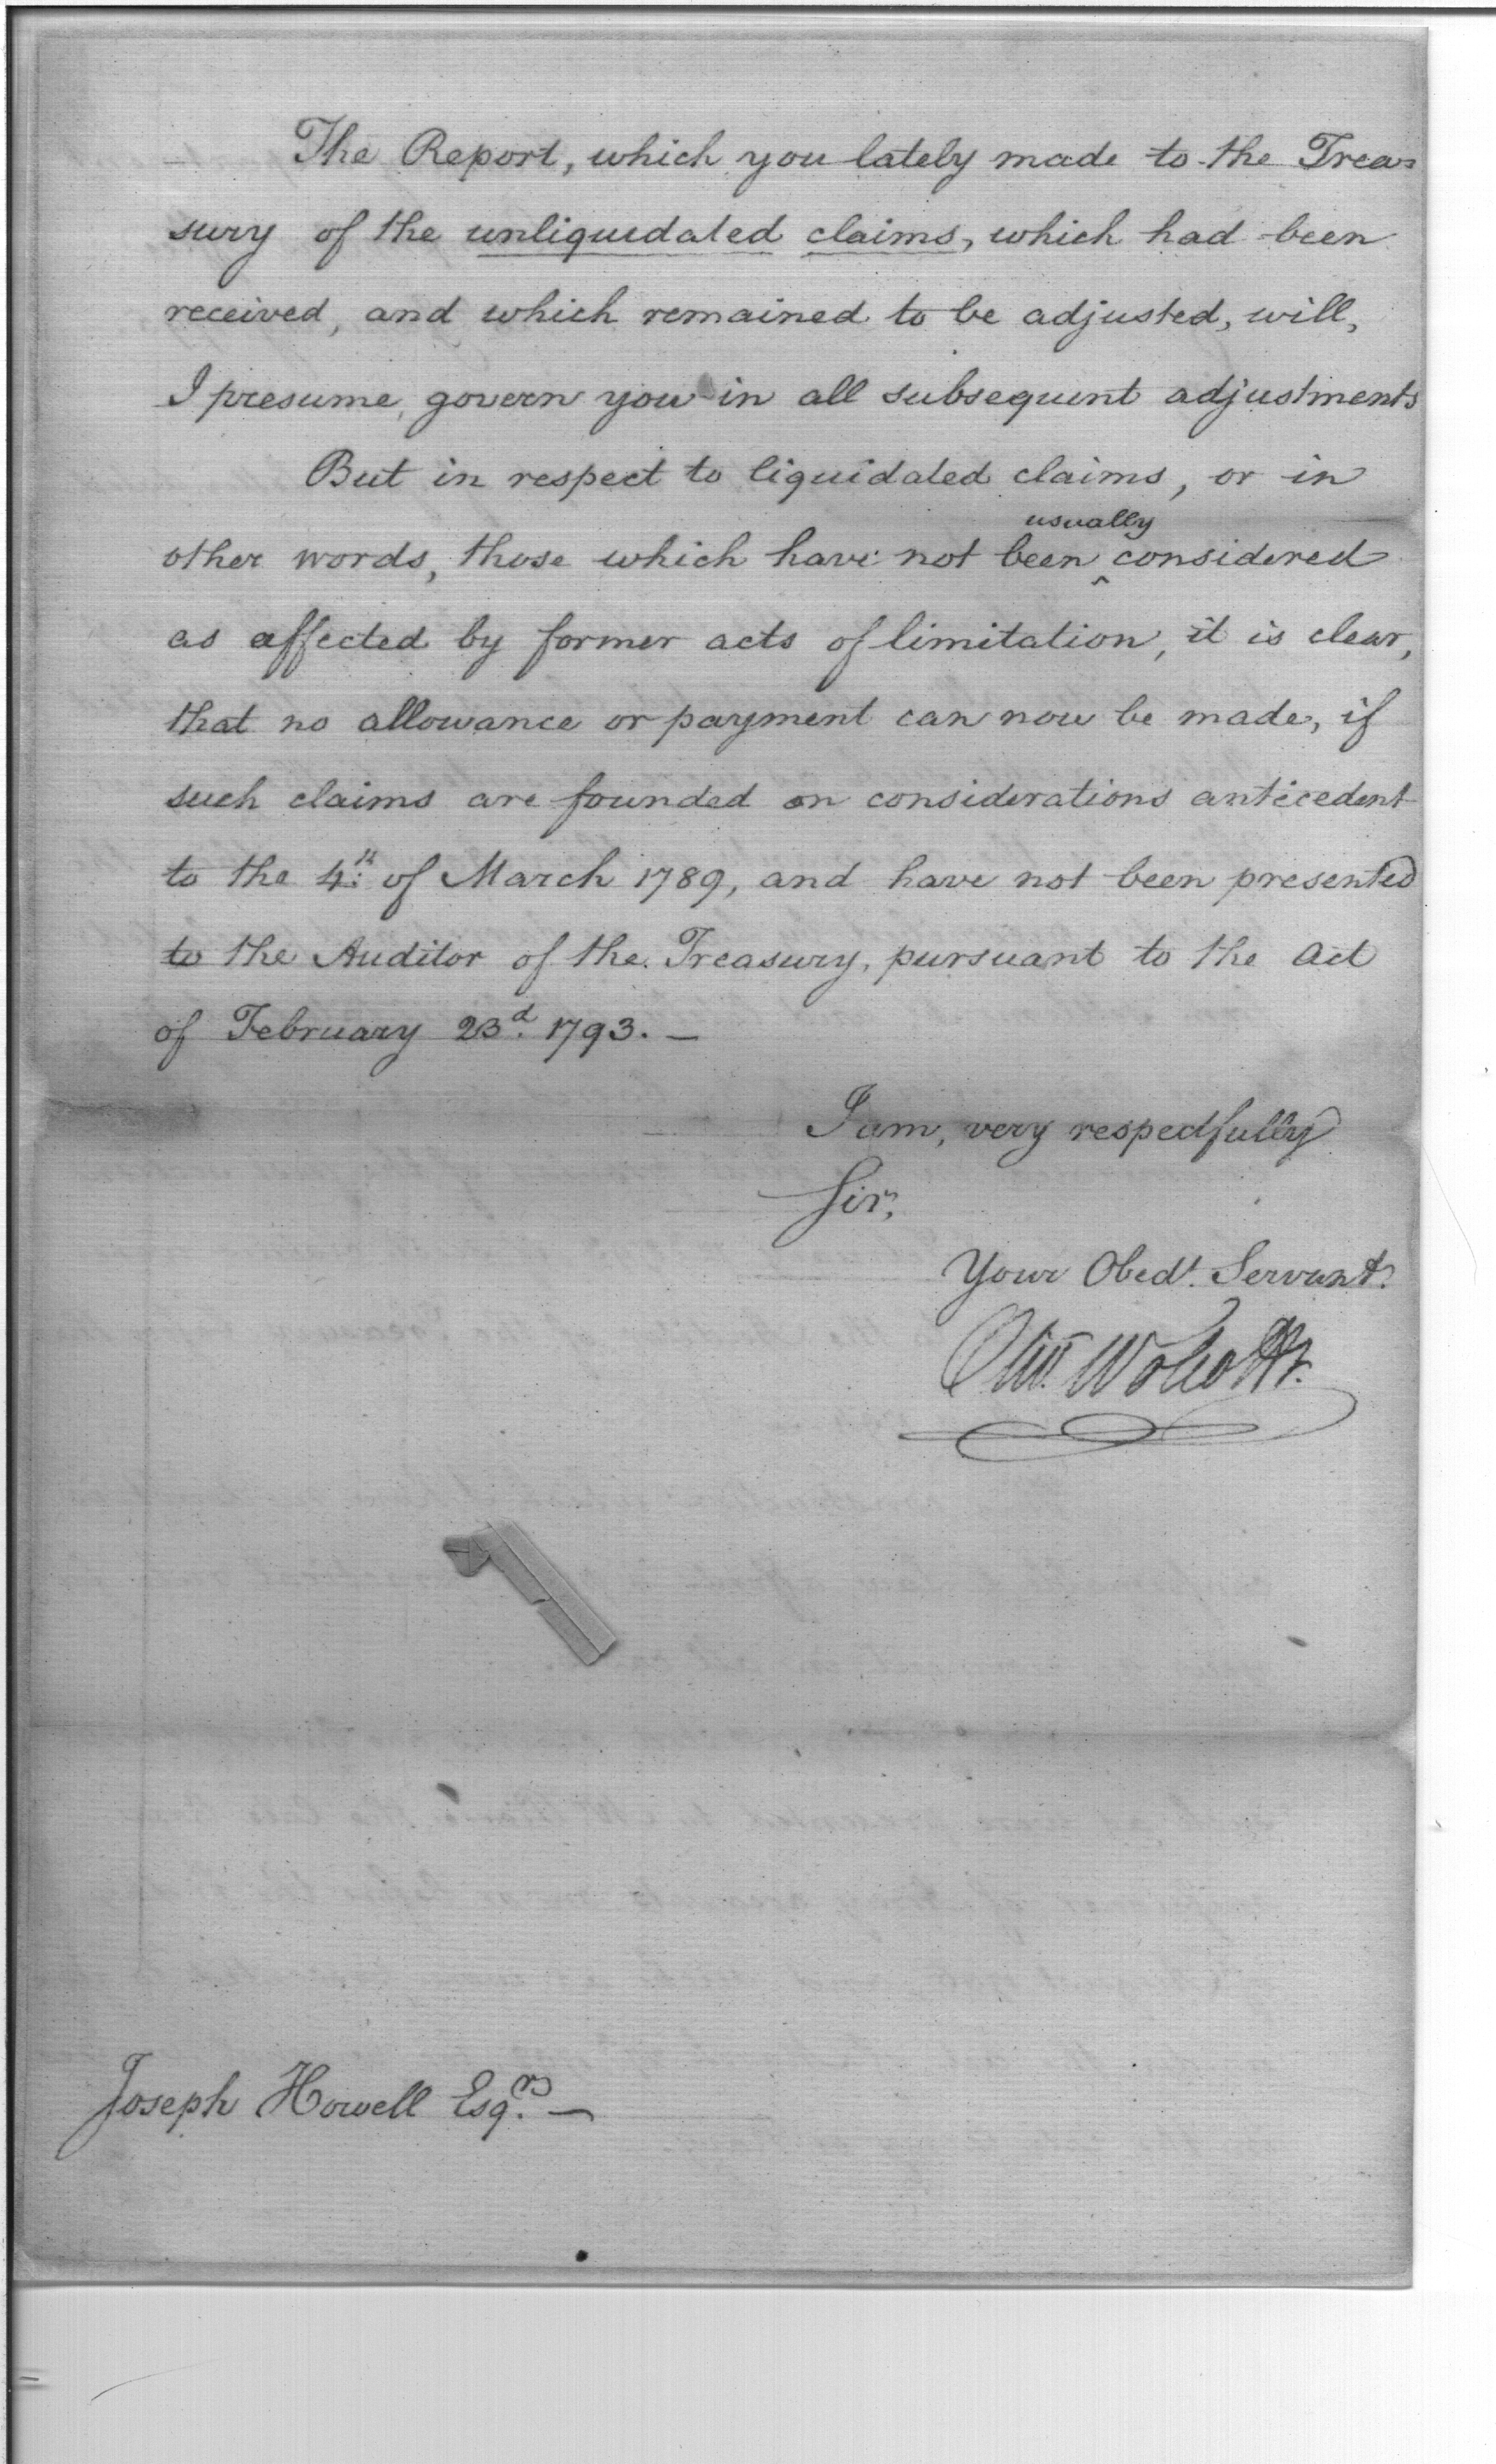 The Report, which you lately made to the Trea=
sury of the unliquidated claims, which had been
received, and which remained to be adjusted, will,
I presume, govern you in all subsequent adjustments
But in respect to liquidated claims, or in
usually
other words, those which have not been ^ considered
as affected by former acts of limitation, it is clear,
that no allowance or payment can now be made, if
such claims are founded on considerations antecedent
to the 4th of March 1789, and have not been presented
to the Auditor of the Treasury, pursuant to the Act
of February 23d. 1793. —
I am, very respectfully
Sir,
Your Obedt. Servant.
Oliv. Wolcott Jr.
Joseph Howell Esqr. —